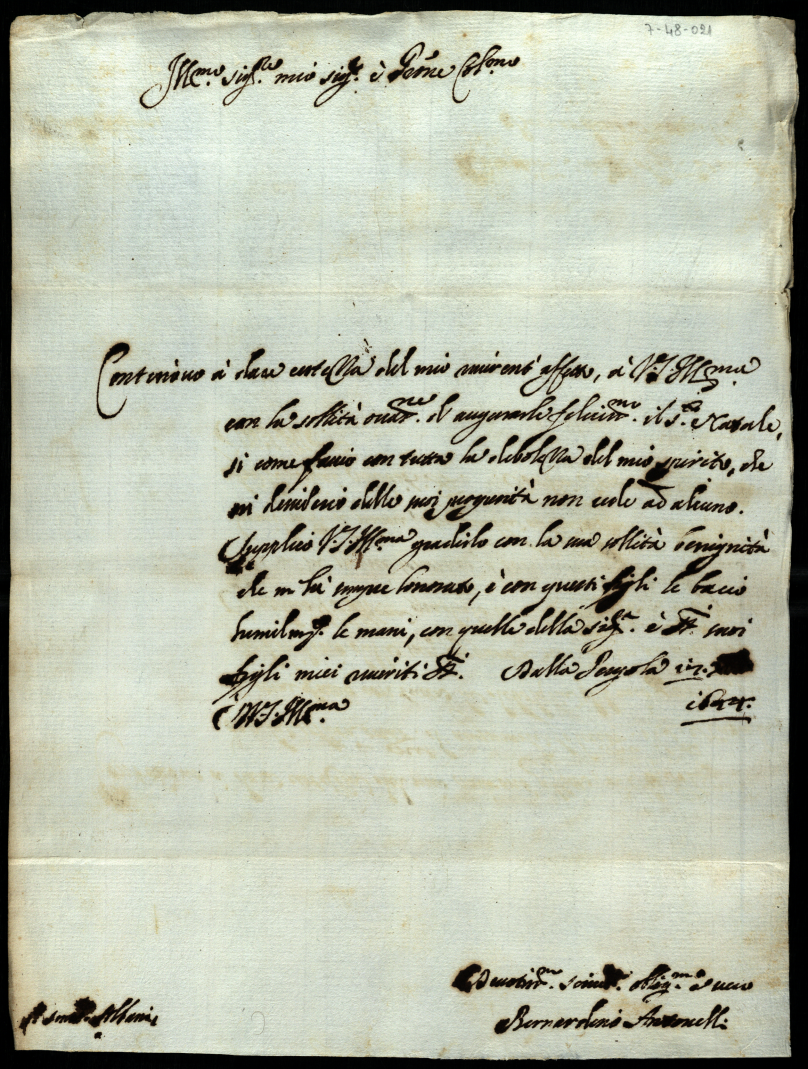 7-48-021
Ill.mo sig.re mio sig.r è Pr̃one Col.mo
Continouo à dare certezza del mio riuerent' affetto, à V.S. Ill.ma
con la sollità di augurarle felicim.mo il S. Natale,
si come faccio con tutta la debolezza del mio spirito, che
nel desiderio delle sue prosperità non cede ad alcuno.
Supplico V.S. Ill.ma gradirlo con la sua sollità benignità
che m' hà sempre honorato, è con questi figli le bacio
humilm.te le mani, con quelle della sig.ra è suoi
figli miei riueriti. Dalla Pergola
V.S. Ill.ma
Deuotiss.mo seruit.r Oblig.mo è vero
Bernardino Antonelli
Albani